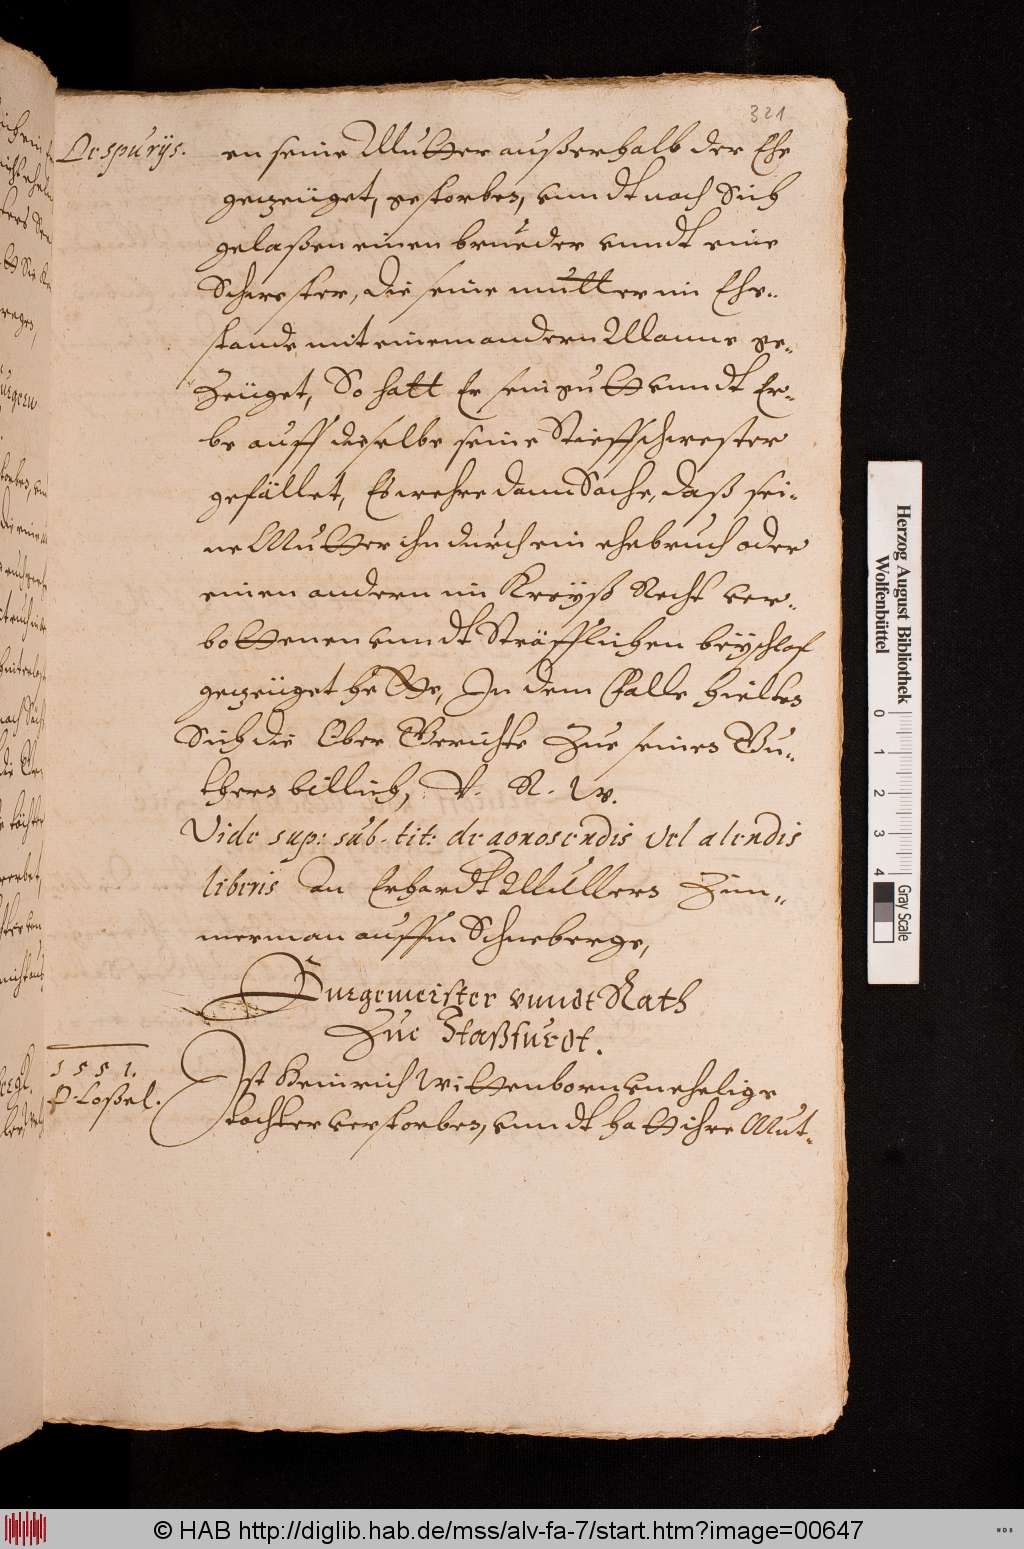 321
De spurijs.
en seine Mutter außerhalb der Ehe
gezeüget, gestorben, vnndt nach Sich
gelaßen einen brueder vnndt eine
Schwester, die seine mutter im Ehe-
stande mit einem andern Manne ge-
Zeüget, So hatt Er sein gutt vnndt Er-
be auff dieselbe seine Stieffschwester
gefället, Es wehre dann Sache, daß sei-
ne Mutter ihn durch ein ehebruch oder
einen andern im Kreyß Recht ver-
bottenen vnndt Sträfflichen beyschlaf
gezeüget hette, In dem Falle hielten
Sich die Ober Gerichte Zue seinen Gu-
thern billich, V. R. W.
Vide sup: sub. tit: de agnoscendis vel alendis
liberis an Erhardt Mullers Zim-
merman auffm Schneberge,
Burgemeister vnndt Rath
Zue Staßfurdt.
1551.
P. Loßel.
Ist Heinrich Wittenborn vnehelige
tochter verstorben, vnndt hatt ihre Mut-
Herzog August Bibliothek
Wolfenbüttel
0 1 2 3 4
Gray Scale
© HAB http://diglib.hab.de/mss/alv-fa-7/start.htm?image=00647